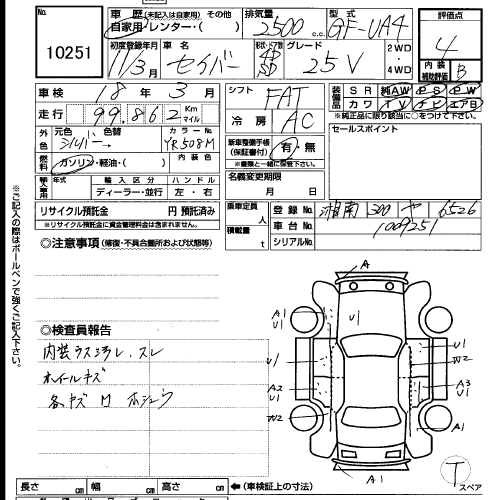 No. 10251
車歴(未記入は自家用) その他
自家用・レンター・( )
排気量 2500 c.c.
型式 GF-UA4
評価点 4
内装補助評価 B
初度登録年月 11/3
車名 セイバー
形状・ドア数 4 SD
グレード 25V
2WD・4WD
車検 18年3月
シフト FAT
装備品 SR 純AW PS PW
カワ TV ナビ エアB
※純正品に限り項目に○をつけて下さい。
走行 99,862 Km マイル
冷房 AC
セールスポイント
外色 元色 シルバー 色替
カラーNo. YR508M
内装色
燃料 ガソリン・軽油・( )
新車整備手帳(保証書付) 有・無
※書類と一緒に保管下さい。
輸入車用 年式 輸入区分 ハンドル
ディーラー・並行 左・右
名義変更期限
月 日
リサイクル預託金 円 預託済み
※リサイクル預託金に資金管理料金は含まれません。
乗車定員 人
積載量 t
登録No. 湘南 300 や 6526
車台No. 1009251
シリアルNo.
◎注意事項(修復・不具合箇所および状態等)
※ご記入の際はボールペンで強くご記入下さい。
◎検査員報告
内装ウスヨゴレ、スレ
ホイールキズ
各キズ M ホシュウ
A
A1
U1
A1
U1
U1
U1
W2
A2
U1
A3
U1
W2
A1
A1
T
スペア
長さ cm 幅 cm 高さ cm
(車検証上の寸法)